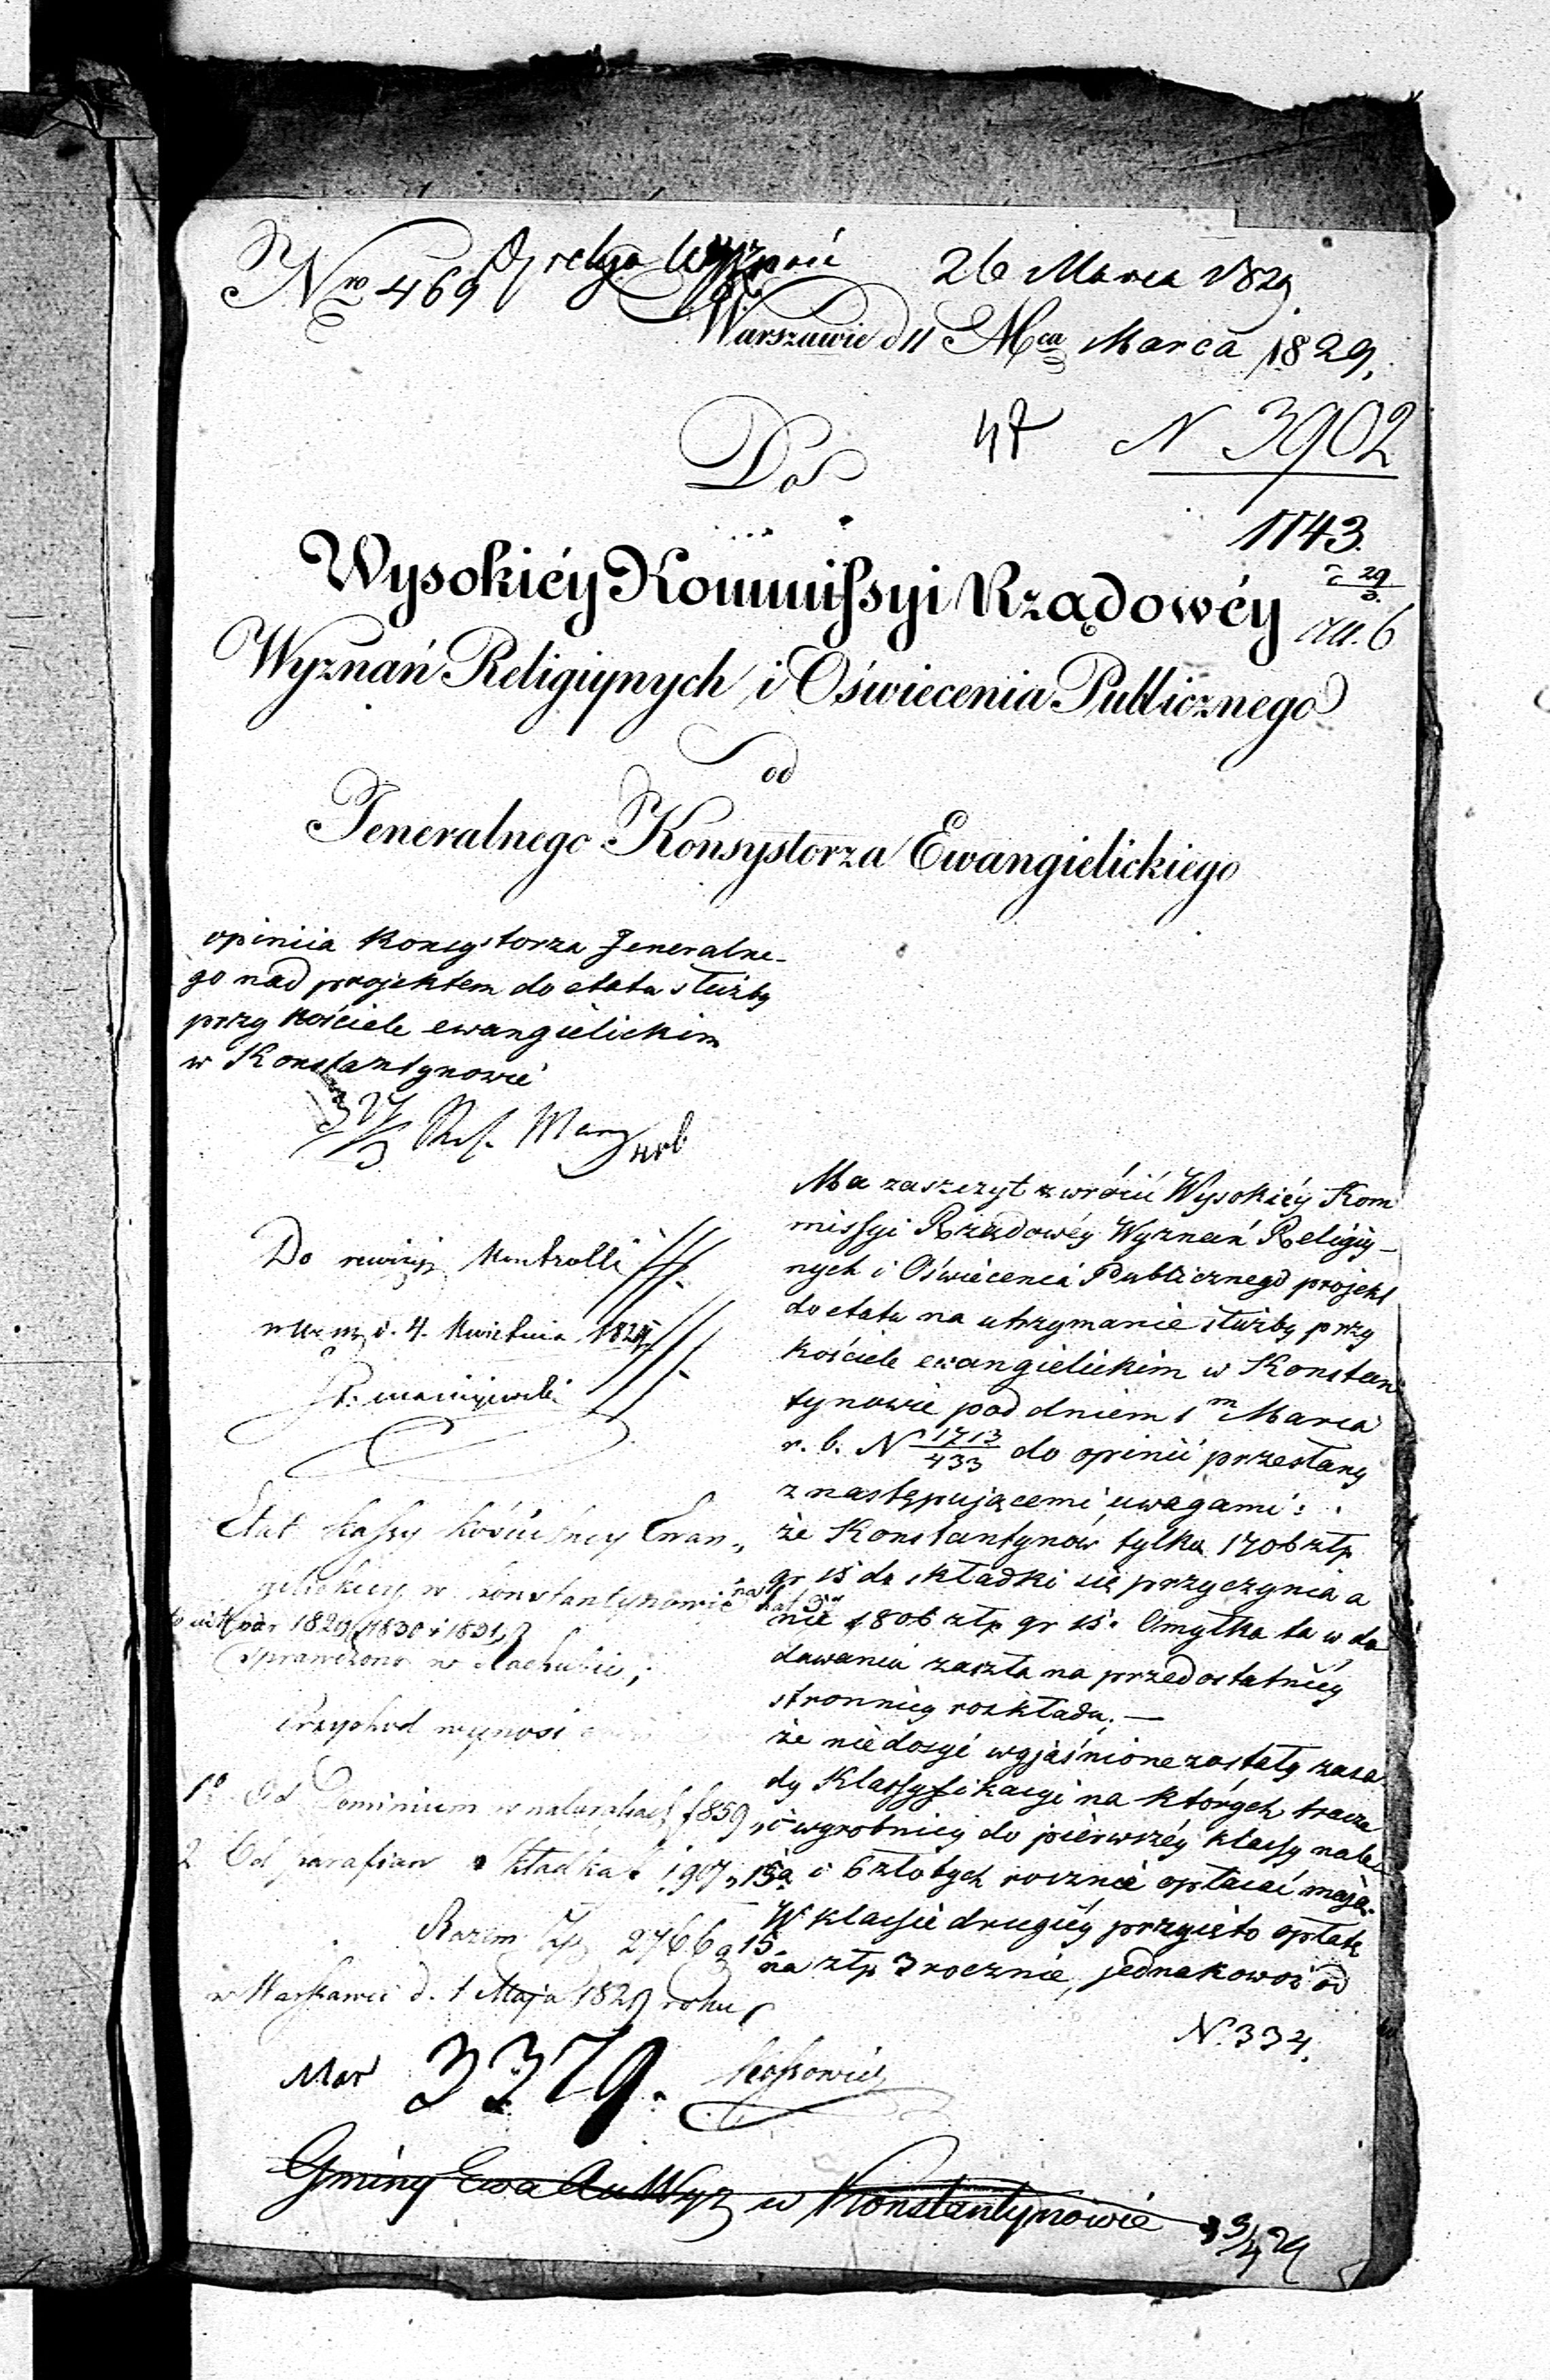 Nro 469
26 Marca 1829
Warszawie d 11 Mca Marca 1829.
Do
N 3902
1143.
29
3.
6
Wysokiéy Kommissyi Rządowéy
Wyznań Religiynych i Oświecenia Publicznego
od
Jeneralnego Konsystorza Ewangielickiego
opiniia Konsystorza Jeneralne-
go nad projektem do etatu służby
przy kościele ewangielickim
w Konstantynowie
Do rewizyi Kontrolli
d. 4. Kwietnia 1829
Etat kassy kościelney Ewan-
gielickiey w Konstantynowie na
1829/1830 i 1831
Sprawdzono w Rachubie;
Przychod wynosi
1o Od Dominium w naturaliach f 859 "
2 Od parafian Składka f 1907 " 15
Razem Złp 2766 g 15
w Warszawie d. 1 Maja 1829 roku
Ma zaszczyt zwrócić Wysokiéy Kom
missyi Rządowéy Wyznań Religiy-
nych i Oświecenia Publicznego projekt
do etatu na utrzymanie służby przy
kościele ewangielickim w Konstan
tynowie pod dniem 1m Marca
r. b. N 1713/433 do opinii przesłany
z następującemi uwagami:
że Konstantynów tylko 1706 złp
gr 15 do składki się przyczynia a
nie 1806 złp gr 15. Omyłka ta w do
dawaniu zaszła na przedostatniéy
stronnicy rozkładu. —
że niedosyć wyjaśnione zostały zasa
dy Klassyfikacyi na których tracze
i wyrobnicy do pierwszéy klassy należą
i 6 złotych rocznie opłacać mają.
W klassie drugiéy przyięto opłatę
na złp 3 rocznie, jednakowoż od
N. 334.
Mar 3379.
Gminy Ewa Au Wyz w Konstantynowie